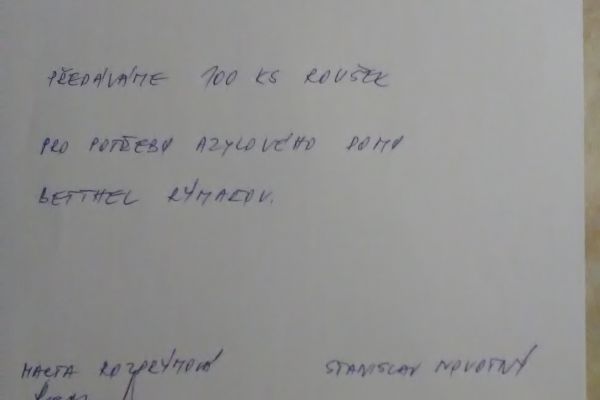 PŘEDÁVÁME 100 KS ROUŠEK
PRO POTŘEBY AZYLOVÉHO DOMU
BETTHEL RÝMAŘOV.
MARTA STANISLAV NOVOTNÝ